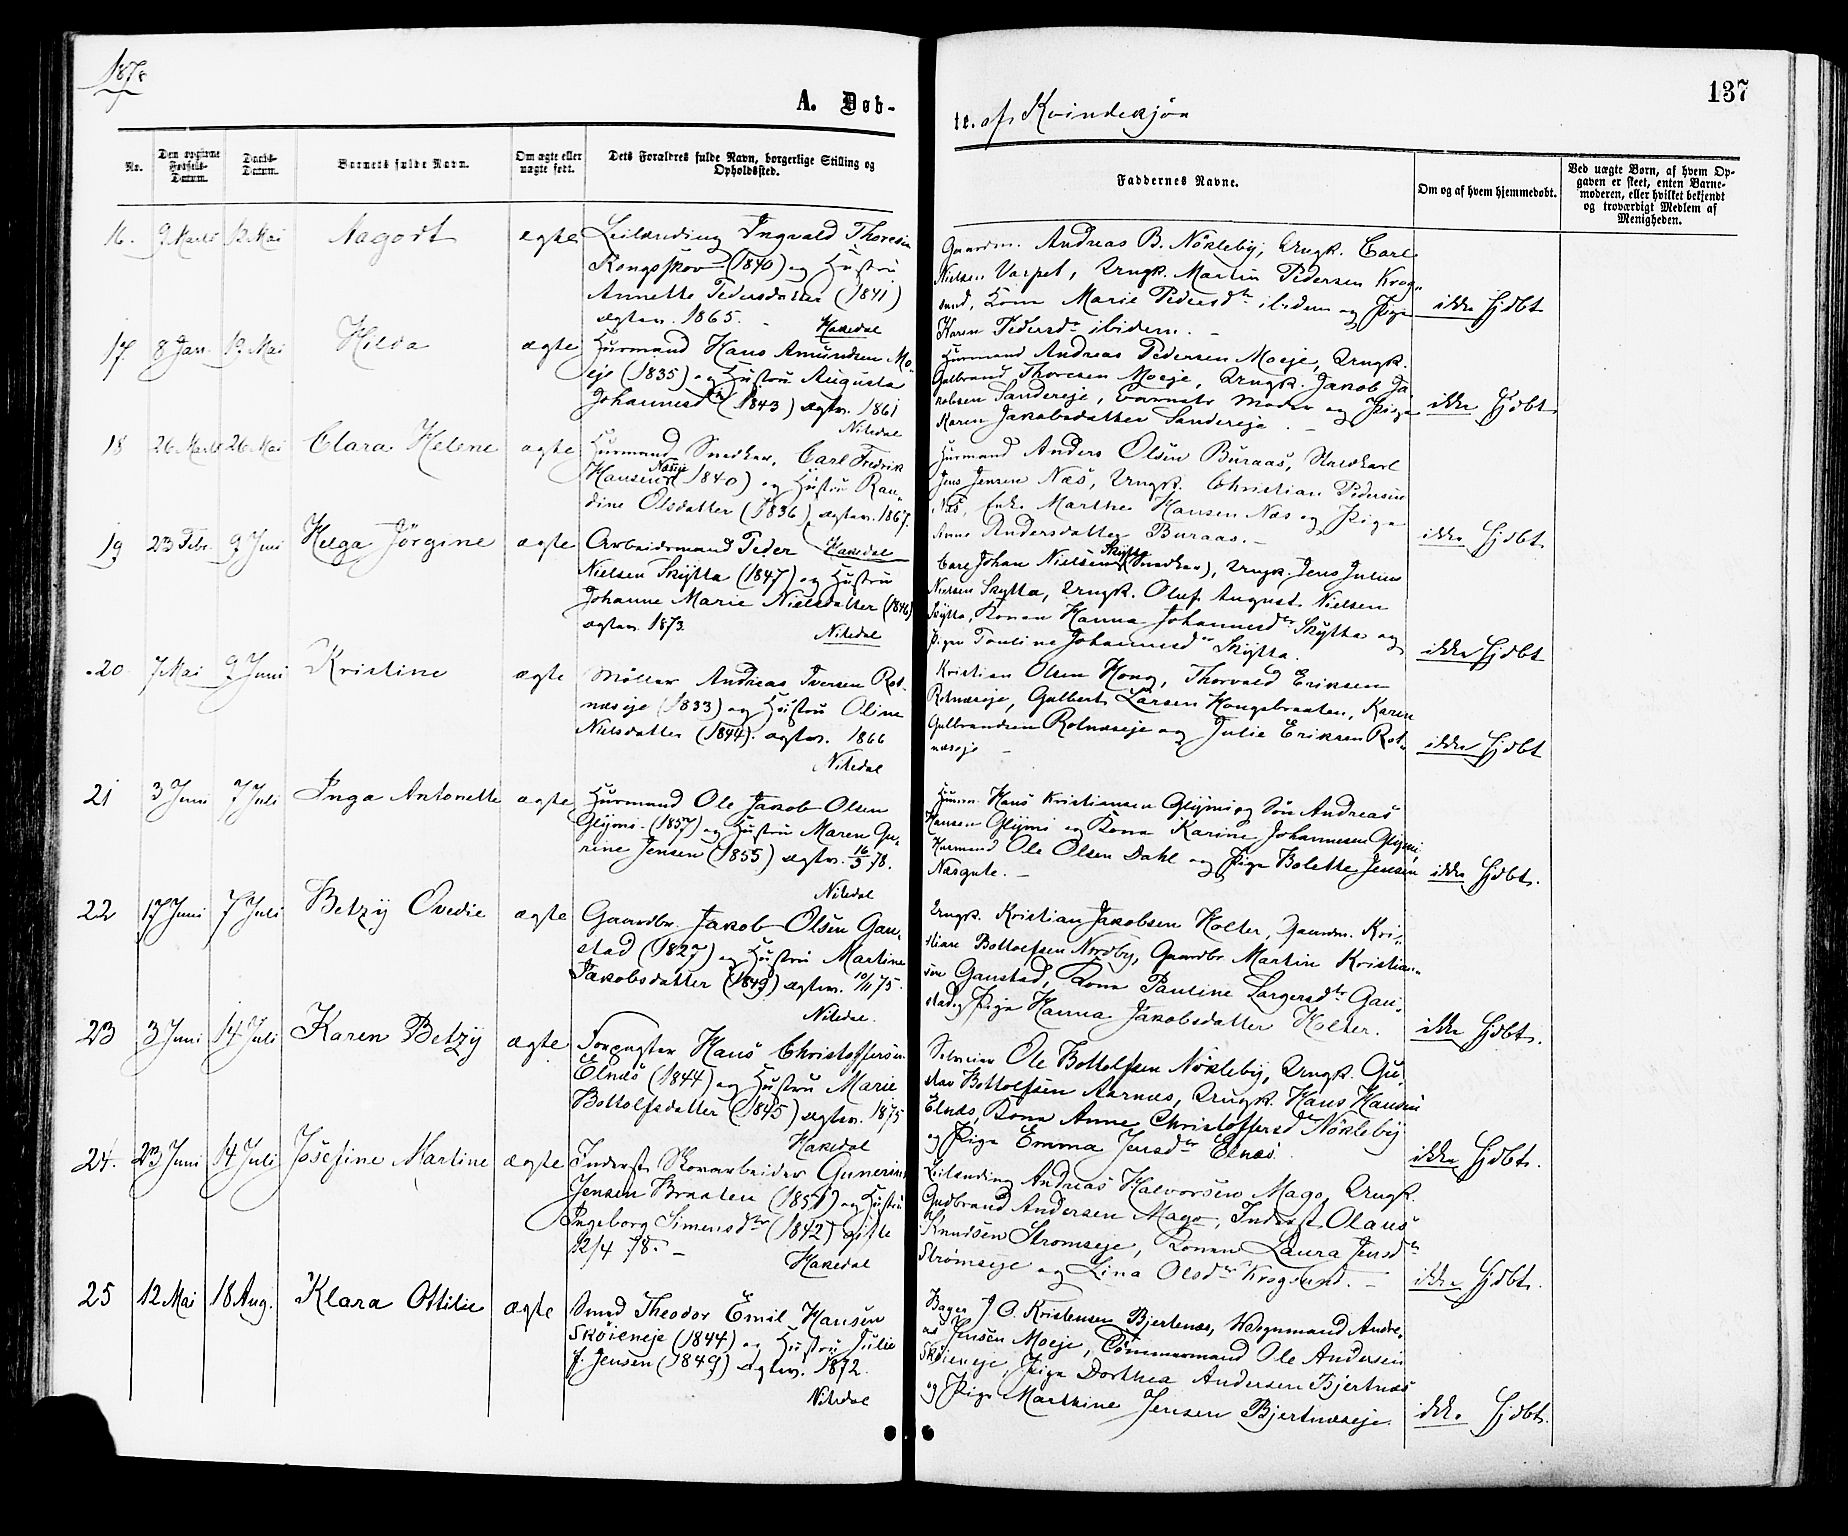 1878
137
A. Døb-
te. af Kvindekjøn
No.
Den opgivne Fødsels-Datum.
Daabs-Datum.
Barnets fulde Navn.
Om ægte eller uægte født.
Dets Forældres fulde Navn, borgerlige Stilling og Opholdssted.
Faddernes Navne.
Om og af hvem hjemmedøbt.
Ved uægte Børn, af hvem Opgaven er skeet, enten Barnemoderen, eller hvilket bekjendt og troværdigt Medlem af Menigheden.
16. 9 Marts 12 Mai Aagodt ægte
Leilænding Ingvald Thoresen
Kongsskov (1840) og Hustru
Annette Pedersdatter (1841)
ægtev. 1865. Hakedal
Gaardm. Andreas B. Nökleby, Ungk. Carl
Nielsen Varpet, Ungk. Martin Pedersen Krog-
sund, Kona Marie Pedersdtr ibidem og Pige
Karen Pedersdr ibidem. -
ikke Hjdbt
17 8 Jan. 12 Mai Hilda ægte
Husmand Hans Amundsen Mo-
eje (1835) og Hustru Augusta
Johannesdtr (1843) ægtev. 1861
Nitedal
Husmand Andreas Pedersen Moeje, Ungk.
Gulbrand Thoresen Moeje, Ungk. Jakob Ja-
kobsen Sandereje, Barnets Moder og Pige
Karen Jakobsdatter Sandereje. -
ikke Hjdbt.
18 26 Marts 26 Mai Clara Helene ægte
Husmand Snedker, Carl Fredrik
Hansen Næseje (1840) og Hustru Ran-
dine Olsdatter (1836) ægtev. 1867.
Hakedal
Husmand Anders Olsen Buraas, Staldkarl
Jens Jensen Næs, Ungk. Christian Pedersen
Næs, Enke Marthe Hansen Næs og Pige
Anne Andersdatter Buraas. -
ikke Hjdbt.
19 23 Febr. 9 Juni Helga Jörgine ægte
Arbeidsmand Peder
Nielsen Skytta (1847) og Hustru
Johanne Marie Nielsdatter (1846)
ægtev. 1873. Nitedal
Carl Johan Nielsen Skytta (Snedker), Ungk. Jens Julius
Nielsen Skytta, Ungk. Oluf August Nielsen
Skytta, Konen Hanna Johannesdtr Skytta og
Pigen Pauline Johannesdr Skytta.
ikke Hjdbt
20. 7 Mai 9 Juni Kristine ægte
Møller Andreas Iversen Rot-
næseje (1833) og Hustru Oline
Nielsdatter (1844). ægtev. 1866
Nitedal
Kristian Olsen Haug, Thorvald Eriksen
Rotnæseje, Gulbert Larsen Haugsbraaten, Karen
Gulbrandsen Rotnæseje og Julie Eriksen Rot-
næseje -
ikke Hjdbt
21 3 Juni 7 Juli Inga Antonette ægte
Husmand Ole Jakob Olsen
Glymi (1857) og Hustru Maren Gu-
rine Jensen (1855) ægtev. 16/3 78.
Nitedal
Husm. Hans Kristiansen Glymi og Søn Andreas
Hansen Glymi og Kona Karine Johannesen Glymi,
Husmand Ole Olsen Dahl og Pige Bolette Jensen
ikke Hjdbt.
22 17 Juni 7 Juli Betzy Ovedie ægte
Gaardbr. Jakob Olsen Gau-
stad (1827) og Hustru Martine
Jakobsdatter (1849) ægtev. 10/11 75.
Nitedal.
Ungk. Kristian Jakobsen Holter, Gaardm. Kri-
stian Bottolfsen Nordby, Gaardbr. Martin Kristian-
sen Gaustad, Kona Pauline Largersdtr Gau-
stad og Pige Hanna Jakobsdatter Holter.
ikke Hjdbt.
23 3 Juni 14 Juli Karen Betzy ægte
Forpagter Hans Christoffersen
Elnæs (1844) og Hustru Marie
Bottolfsdatter (1845) ægtev. 1875
Hakedal
Selveier Ole Bottolfsen Nökleby, Ungk. Gu-
stav Bottolfsen Aarnæs, Ungk. Hans Hansen
Elnæs, Kona Anne Christoffersd Nökleby
og Pige Emma Jensdtr Elnæs.
ikke Hjdbt.
24. 23 Juni 14 Juli Josefine Martine ægte
Inderst Skovarbeider Gunerius
Jensen Braaten (1851) og Hustru
Ingeborg Simensdtr (1842) gifte
12/4 78. -
Hakedal
Leilænding Andreas Halvorsen Mago, Ungk.
Gudbrand Andersen Mago, Inderst Olaus
Knudsen Strømseje, Konen Laura Jensdtr
Strømseje og Lina Olsdtr Krogsund. -
ikke Hjdbt.
25 12 Mai 18 Aug. Klara Ottilie ægte
Smed Theodor Emil Hansen
Skøieneje (1844) og Hustru Julie
J. Jensen (1849) ægtev. 1872.
Nitedal
Bager J. O. Kristensen Bjertnæs, Vognmand Andre-
as Jensen Moeje, Tömmermand Ole Andersen
Skøieneje, Pige Dorthea Andersen Bjertnæs
og Pige Marthine Jensen Bjertnæseje
ikke Hjdbt.